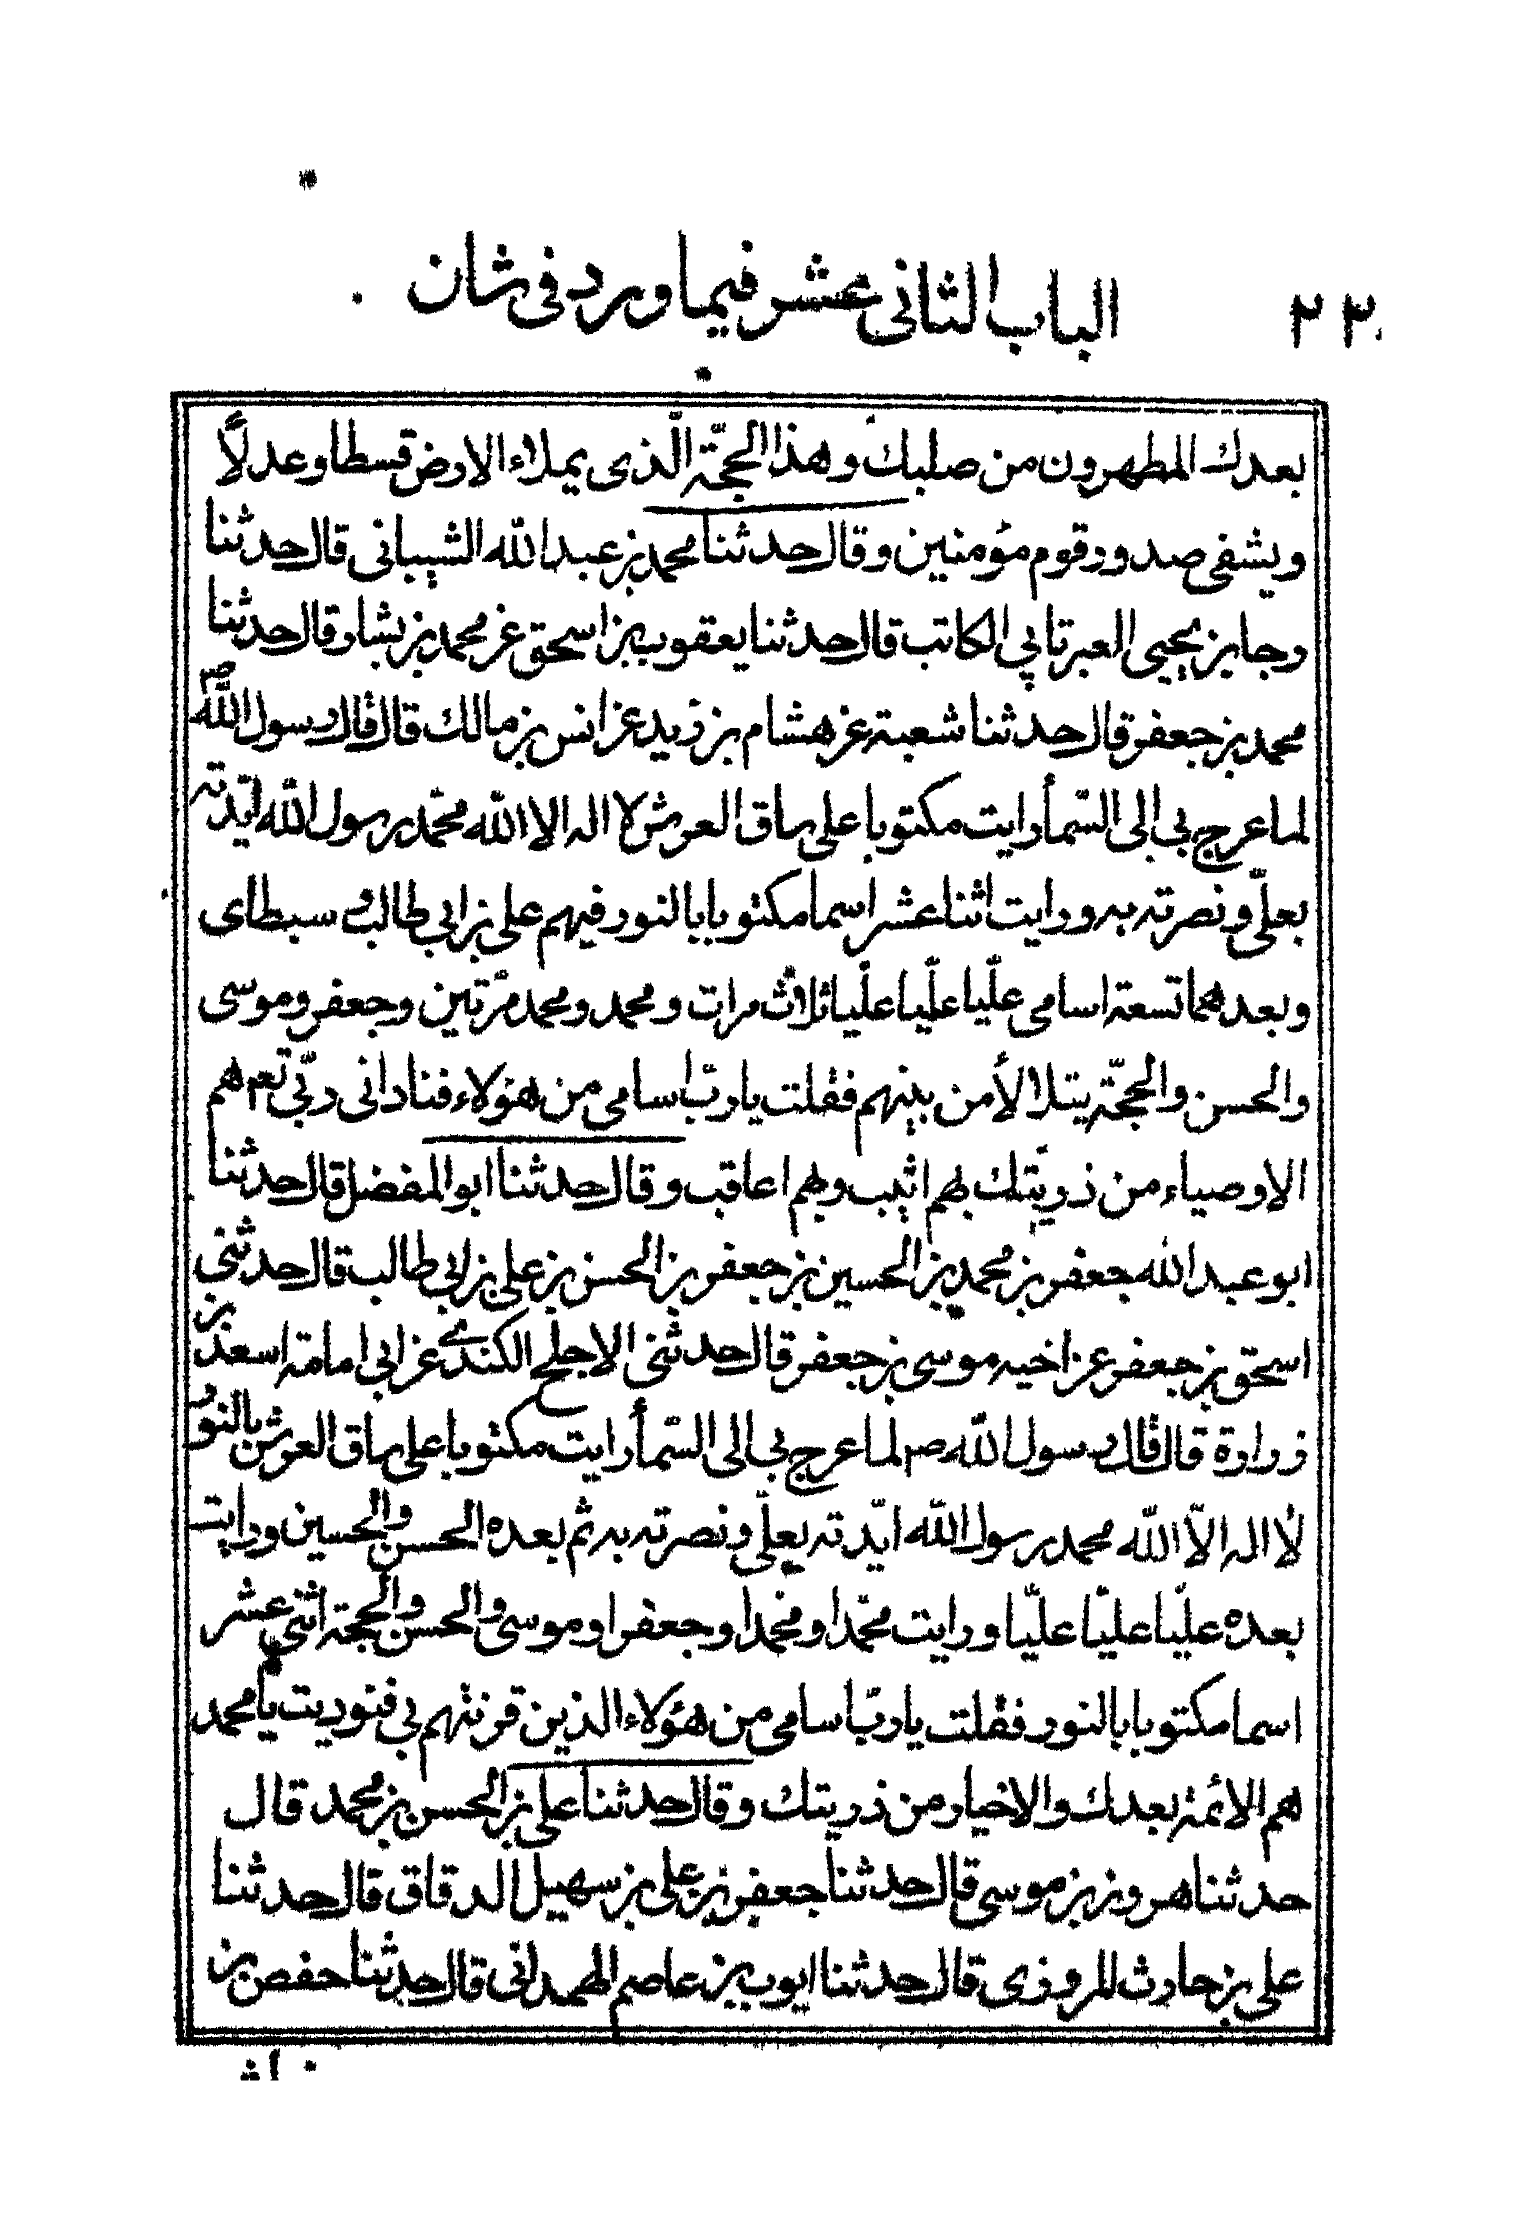 ٢٢٠ الباب الثانى عشر فيما ورد فى شان
بعدك المطهرون من صلبك وهذا الحجّة الّذى يملاء الارض قسطا وعدلًا
ويشفى صدور قوم مؤمنين وقال حدثنا محمد بن عبد الله الشيبانى قال حدثنا
رجا بن يحيى العبرتايى الكاتب قال حدثنا يعقوب بن اسحق عن محمد بن بشار قال حدثنا
محمد بن جعفر قال حدثنا شعبة عن هشام بن زيد عن انس بن مالك قال قال رسول الله ص
لما عرج بى الى السّمأ رايت مكتوبا على ساق العرش لا اله الا الله محمّد رسول الله ايّدته
بعلّى ونصرته به ورايت اثنا عشر اسما مكتوبا بالنور فيهم على بن ابى طالب و سبطاى
وبعدهما تسعة اسامى عليّا عليّا عليّا ثلاث مرات ومحمد ومحمد مرّتين وجعفر وموسى
والحسن والحجّة يتلألأ من بينهم فقلت يا ربّ اسامى من هؤلاء فنادانى ربّى تعم هم
الاوصياء من ذريّتك بهم اثيب وبهم اعاقب وقال حدثنا ابو المفضل قال حدثنا
ابو عبد الله جعفر بن محمد بن الحسين بن جعفر بن الحسن بن على بن ابى طالب قال حدثنى
اسحق بن جعفر عن اخيه موسى بن جعفر قال حدثنى الاجلح الكندى عن ابى امامة اسعد بن
زرارة قال قال رسول الله ص لما عرج بى الى السّمأ رايت مكتوبا على ساق العرش بالنور
لا اله الّا الله محمد رسول الله ايّدته بعلّى ونصرته به ثم بعده الحسن والحسين ورايت
بعده عليّا عليّا عليّا ورايت محمّدا ومحمدا وجعفرا وموسى والحسن والحجة اثنى عشر
اسما مكتوبا بالنور فقلت يا ربّ اسامى من هؤلاء الذين قرنتهم بى فنوديت يا محمد
هم الائمة بعدك والاخيار من ذريتك وقال حدثنا على بن الحسن بن محمد قال
حدثنا هرون بن موسى قال حدثنا جعفر بن على بن سهيل الدقاق قال حدثنا
على بن حارث المروزى قال حدثنا ايوب بن عاصم الهمدانى قال حدثنا حفص بن